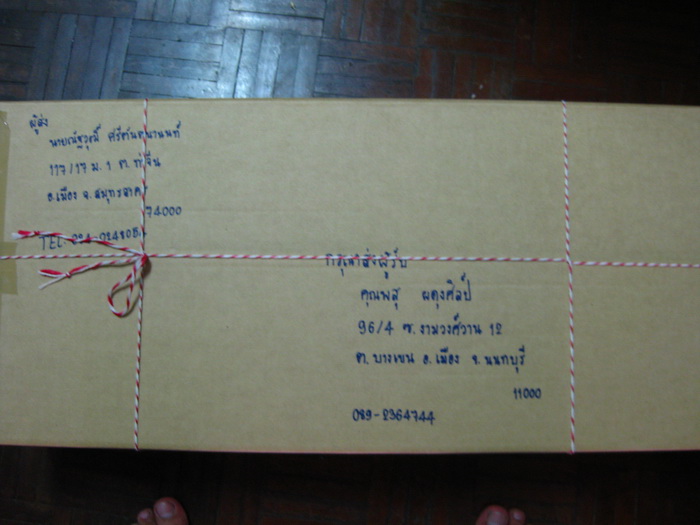 ผู้ส่ง
นายณัฐวุฒิ
117/17 ม.1 ต.ท่าจีน
อ.เมือง จ.สมุทรสาคร
74000
TEL.
กรุณาส่งผู้รับ
คุณพสุ ผดุงศิลป์
96/4 ซ.งามวงศ์วาน 12
ต.บางเขน อ.เมือง จ.นนทบุรี
11000
089-2364744